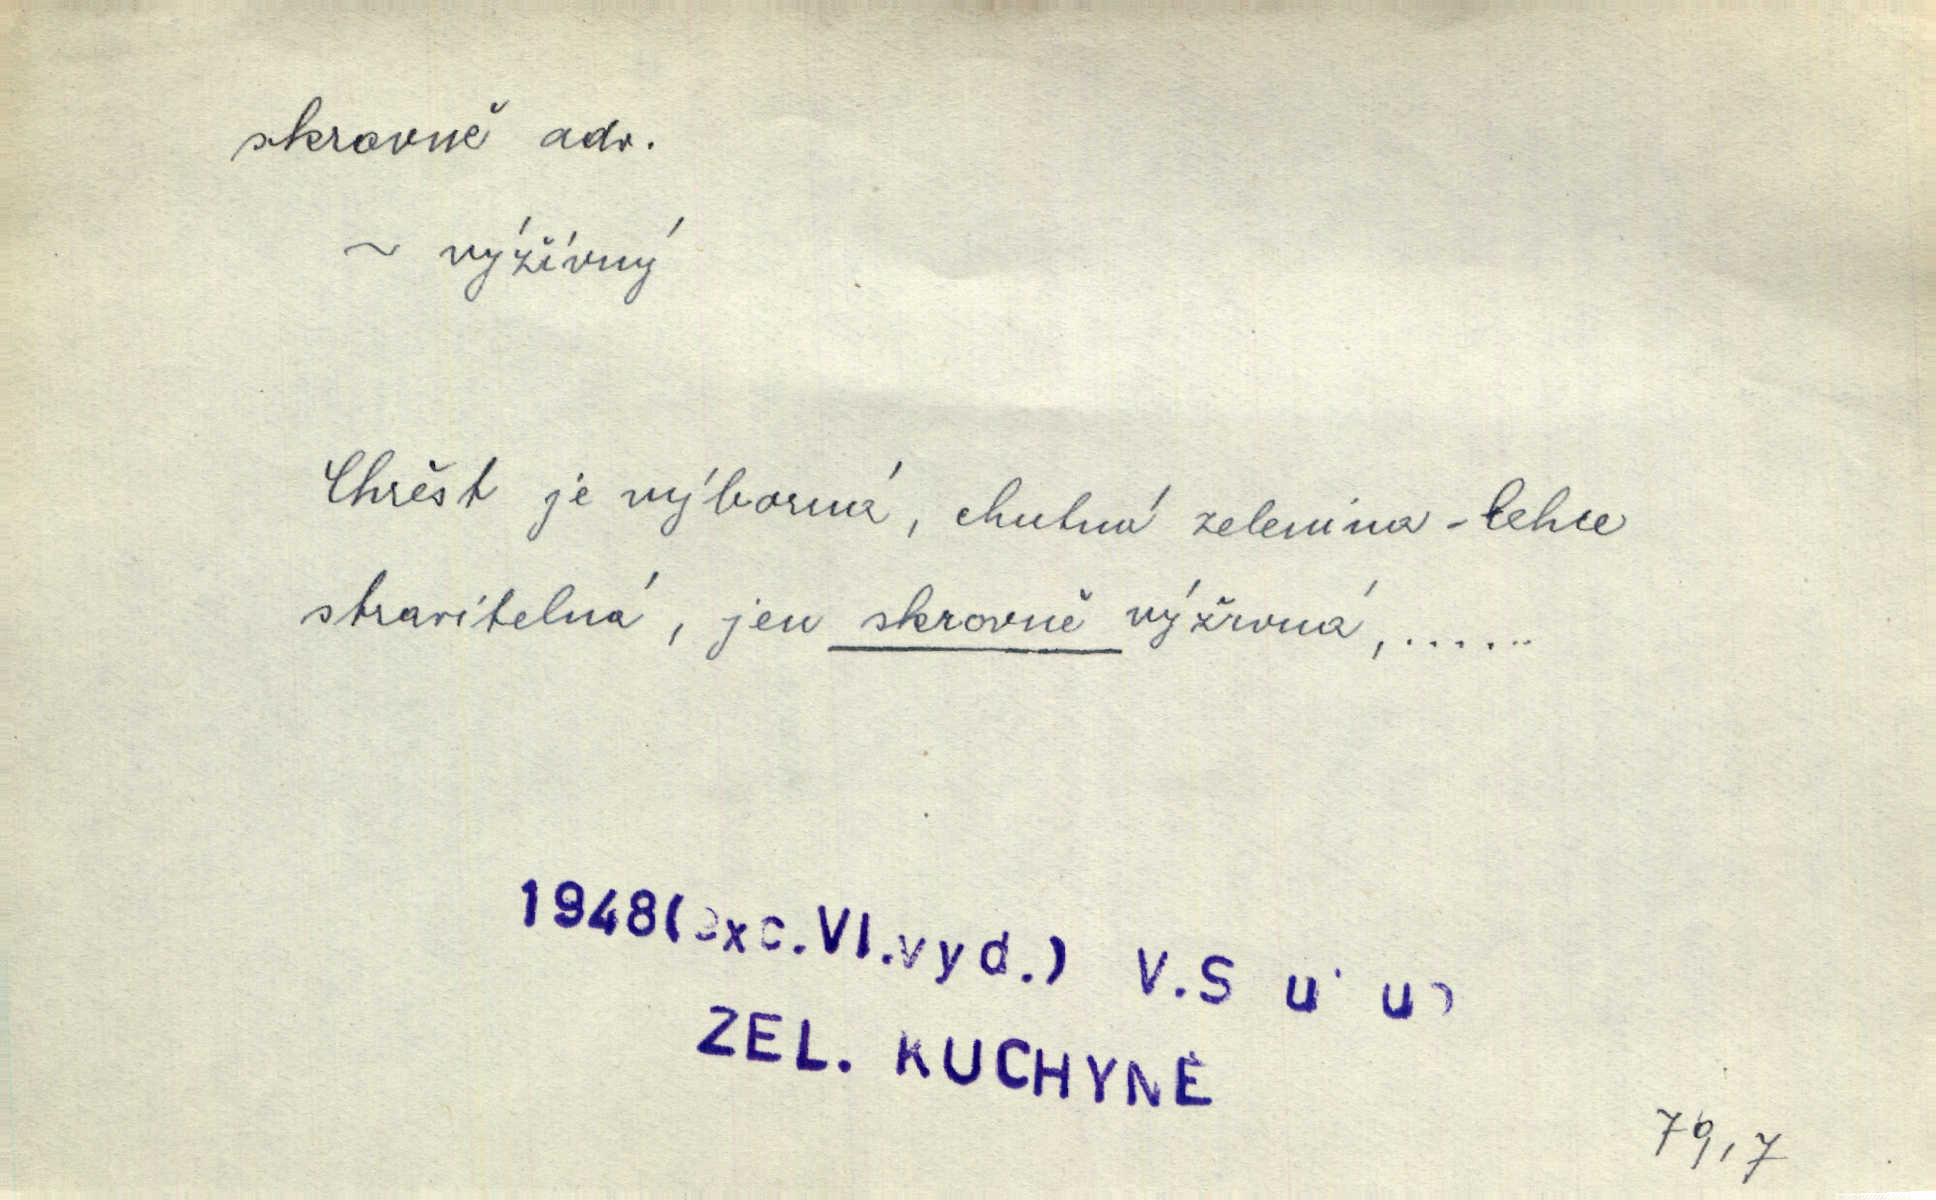 skrovně adv.
~ výžívný
Chrěst je výborná, chutná zelenina - lehce
stravitelná, jen skrovně výživná, ......
1948(exc.VI.vyd.) V.S
ZEL. KUCHYNĚ
79,7